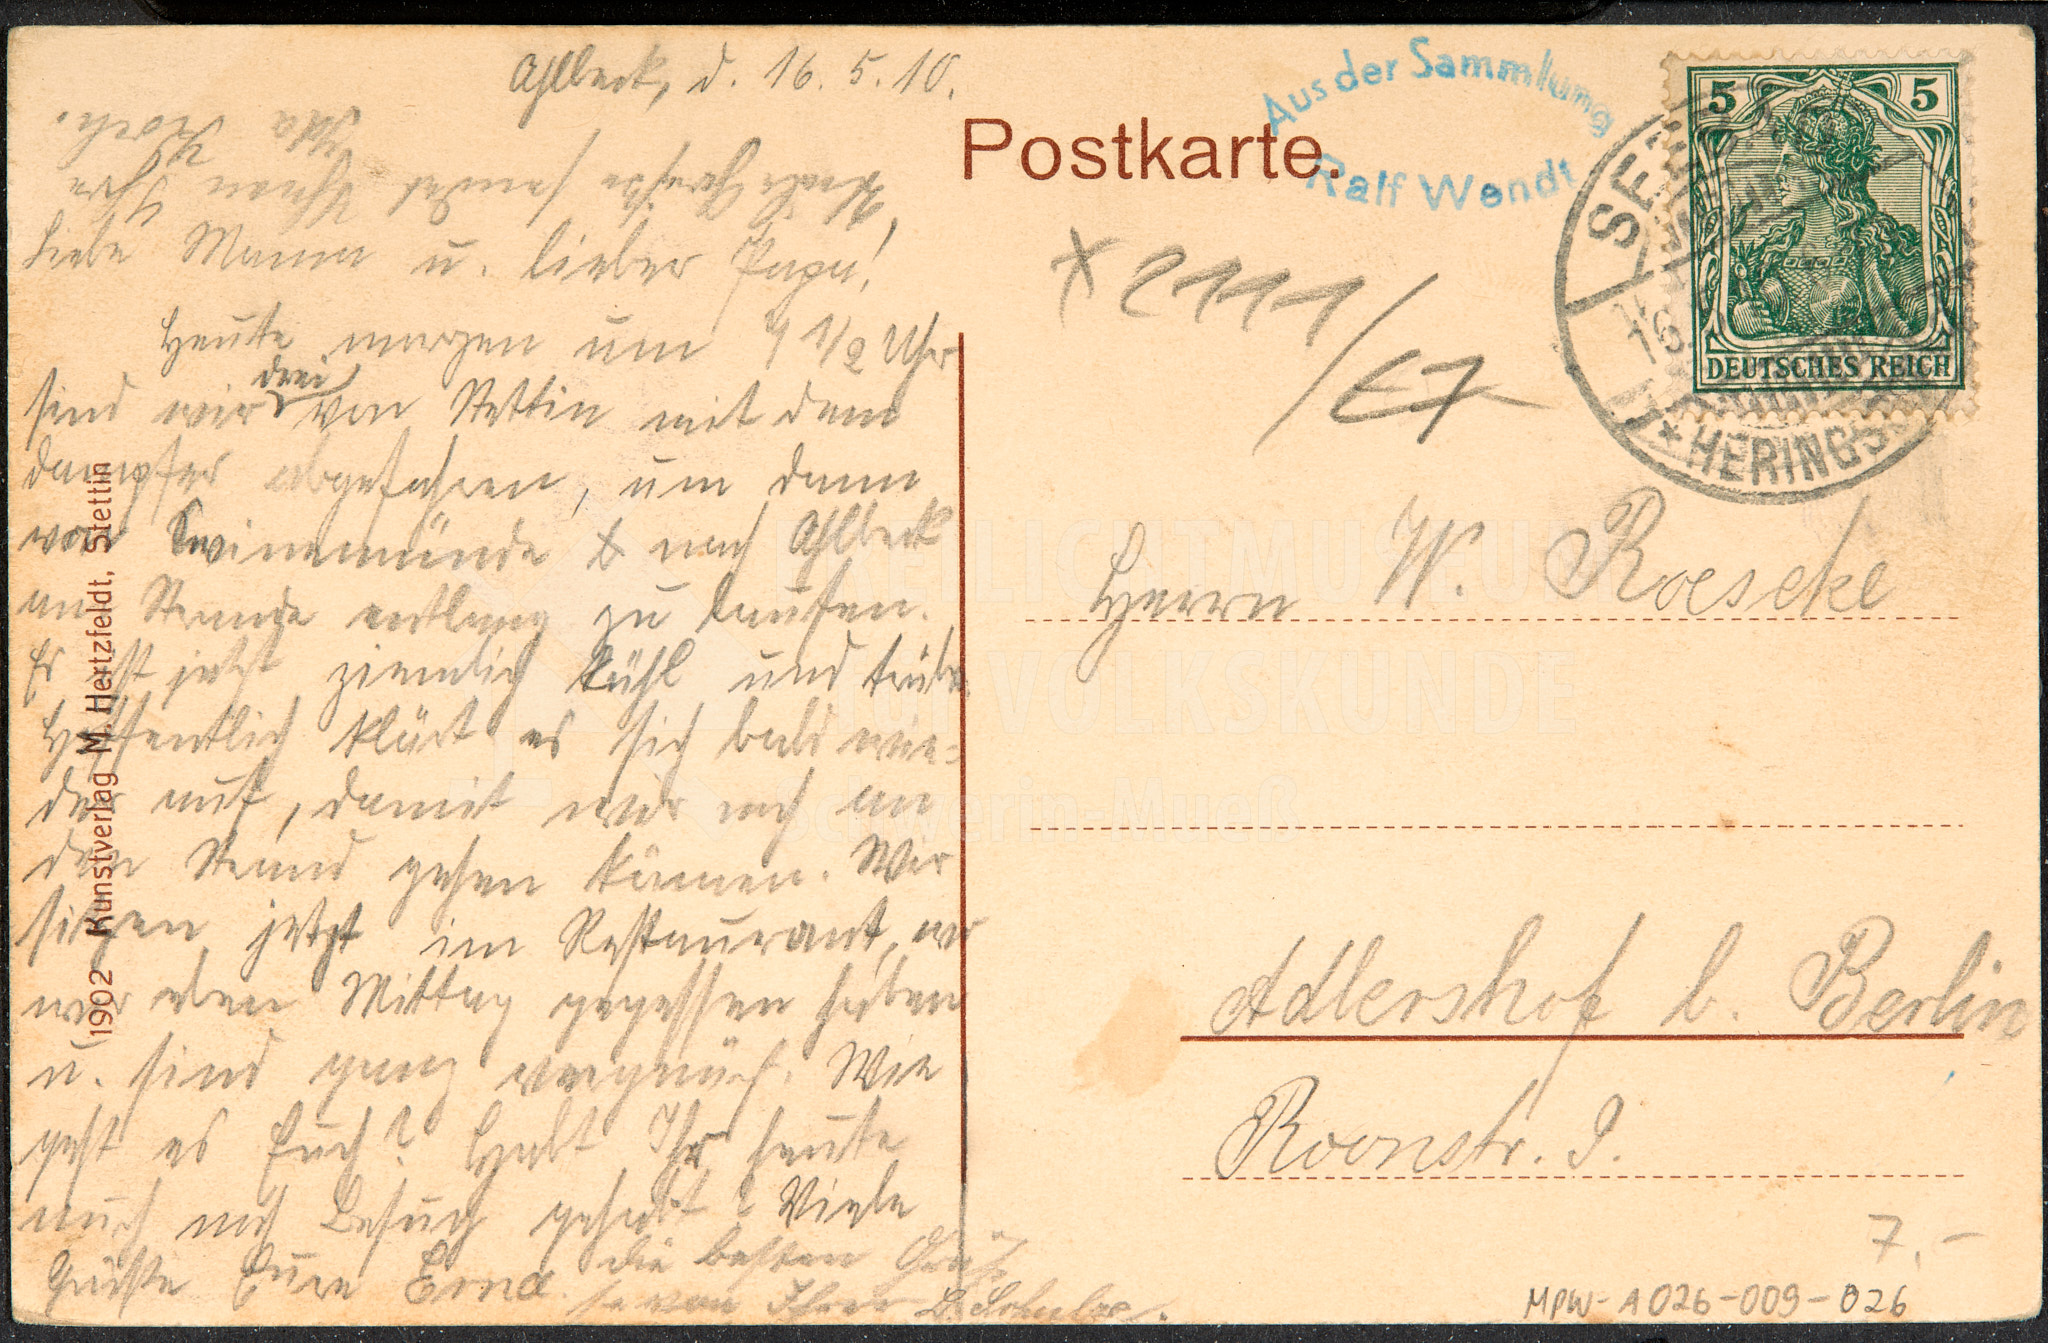 Ahlbeck, d. 16. 5. 10.
Herzl. Grüße sendet Ihnen Ihre
Ida Koch.
Liebe Mama u. lieber Papa!
Heute morgen um 1/2 Uhr
sind wir drei von Stettin mit dem
Dampfer abgefahren, um dann
von Swinemünde nach Ahlbeck
am Strande entlang zu laufen.
Es ist jetzt ziemlich kühl und trübe.
Hoffentlich klärt es sich bald wie-
der auf, damit wir noch an
den Strand gehen können. Wir
sitzen jetzt im Restaurant, wo
wir eben Mittag gegessen haben
u. sind ganz vergnügt. Wie
geht es Euch? Habt Ihr heute
auch noch Besuch gehabt? Viele
Grüße Eure Erna.
die besten Grüs-
se von Ihrer
1902 Kunstverlag M. Hertzfeldt, Stettin
Postkarte.
Aus der Sammlung
Ralf Wendt
5 5
DEUTSCHES REICH
* HERINGS
x 2111/67
Herrn W. Roeseke
Adlershof b. Berlin
Roonstr. 9.
7,-
MPW-A026-009-026
FREILICHTMUSEUM
FÜR VOLKSKUNDE
Schwerin-Mueß